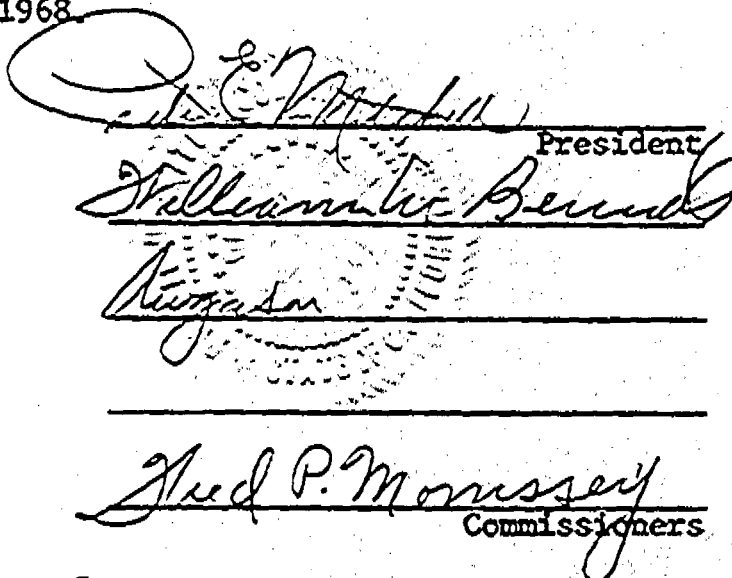 1968.
E Mitchell
President
William W. Bennett
Fred P. Morrissey
Commissioners